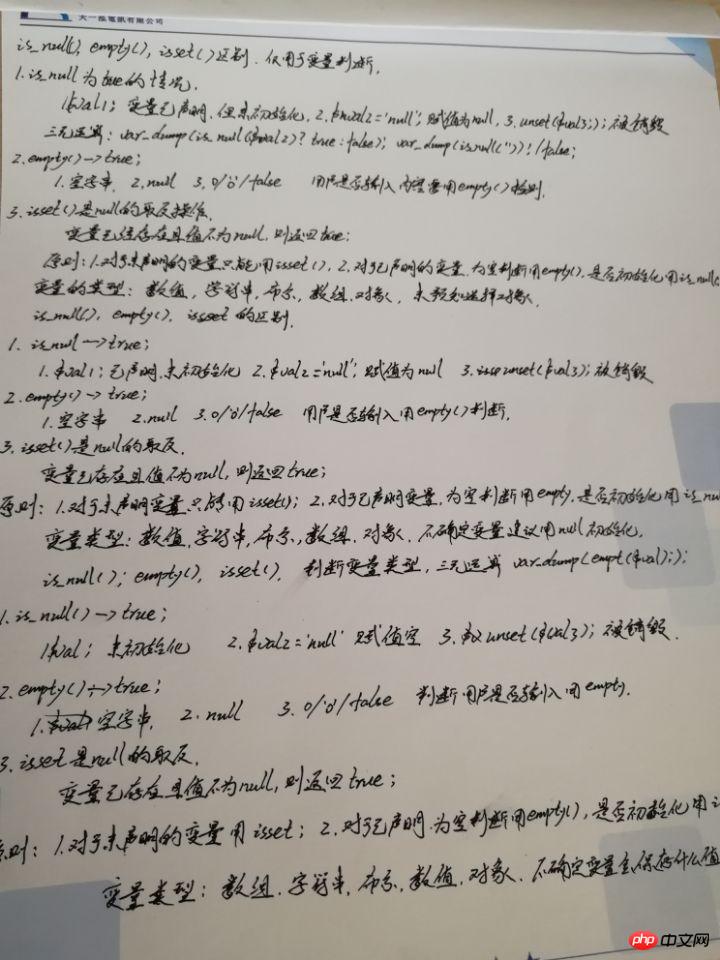 天一泓電訊有限公司
is_null(), empty(), isset()区别. 仅用于变量判断.
1. is_null为true的情况.
1.$val1; 变量已声明, 但未初始化, 2. $val2='null'; 赋值为null, 3. unset($val3;); 被销毁
三元运算: var_dump(is_null($val2)? true: false); var_dump(isnull(''))!/false;
2. empty()→true;
1. 空字串, 2. null 3. 0/'0'/false 用户是否输入内容要用empty()检测.
3. isset()是null的取反操作.
变量已经存在且值不为null, 则返回true;
原则: 1.对于未声明的变量只能用isset(), 2. 对于已声明的变量. 为空判断用empty(), 是否初始化用is_null(
变量的类型: 数值, 字符串, 布尔, 数组. 对象, 未预知选择对象.
is_null(), empty(), isset的区别.
1. is_null→true;
1. $val1; 已声明, 未初始化 2. $val2='null'; 赋值为null 3. unset($val3); 被销毁
2. empty()→true;
1. 空字串 2. null 3. 0/'0'/false 用户是否输入用empty()判断.
3. isset()是null的取反.
变量已存在且值不为null, 则返回true;
原则: 1.对于未声明变量只能用isset(); 2. 对于已声明变量, 为空判断用empty, 是否初始化用is_nu
变量类型: 数值, 字符串, 布尔, 数组. 对象. 不确定变量建议用null初始化.
is_null(); empty(), isset(), 判断变量类型, 三元运算 var_dump(empt($val););
1. is_null()→true;
1.$val; 未初始化 2. $val2='null' 赋值空 3. unset($val3); 被销毁.
2. empty()→true;
1. 空字串, 2. null 3. 0/'0'/false 判断用户是否输入用empty.
3. isset是null的取反.
变量已存在且值不为null, 则返回true;
原则: 1.对于未声明的变量用isset; 2. 对于已声明. 为空判断用empty(), 是否初始化用i
变量类型: 数组. 字符串, 布尔, 数值. 对象. 不确定变量会保存什么值
php 中文网